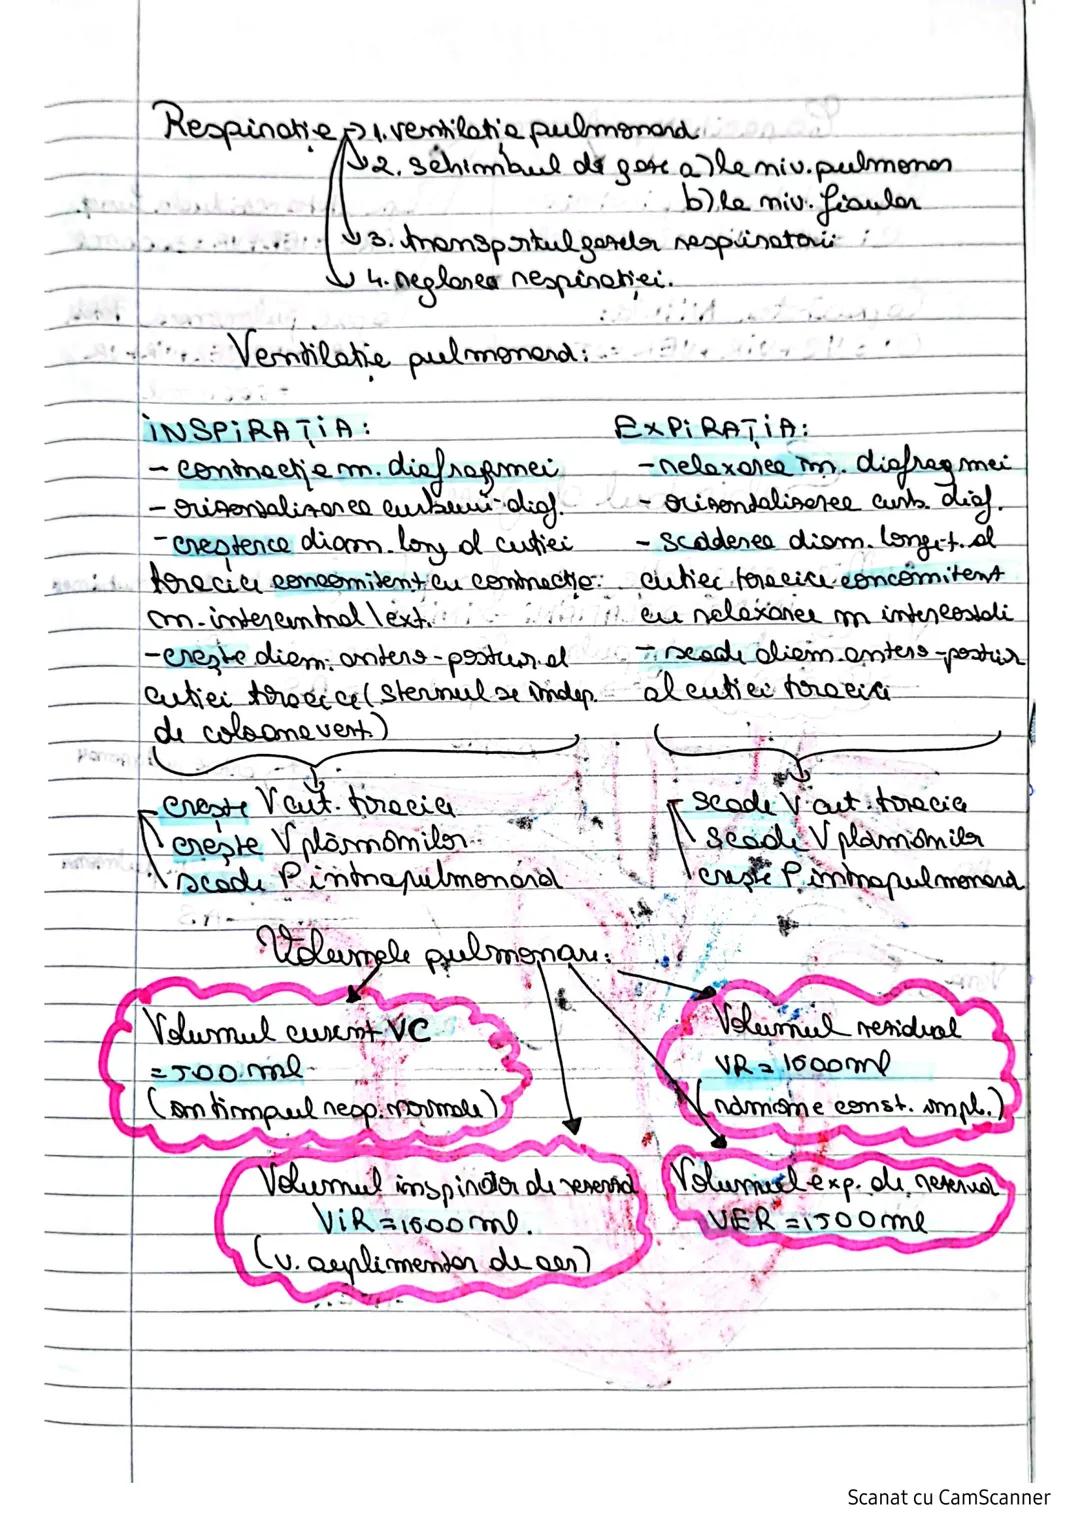 Respirație → 1. ventilația pulmonară
2. schimbul de gaze a) la niv. pulmonar
b) la niv. tisular
3. transportul gazelor respiratorii
4. reglarea respirației.
Ventilație pulmonară:
INSPIRAȚIA:
- contracția m. diafragmei
- orizontalizarea curburii diaf.
- creșterea diam. long al cutiei
toracice concomitent cu contracția
m. intercostal ext.
- crește diam. antero-poster. al
cutiei toracice (sternul se indep.
de coloana vert.)
crește V cut. toracice
crește V plămânilor
scade P intrapulmonară
EXPIRAȚIA:
- relaxarea m. diafragmei
- orizontalizarea curb. diaf.
- scăderea diam. longit. al
cutiei toracice concomitent
cu relaxarea m intercostali
- scade diam antero-poster
al cutiei toracice
scade V cut. toracice
scade V plămânilor
crește P intrapulmonară
Volumele pulmonare:
Volumul curent VC
= 500 ml
(în timpul resp. normale)
Volumul rezidual
VR = 1500 ml
(rămâne const. in pl.)
Volumul inspirator de rezervă
VIR = 1500 ml.
(v. suplimentar de aer)
Volumul exp. de rezervă
VER = 1500 ml
Scanat cu CamScanner